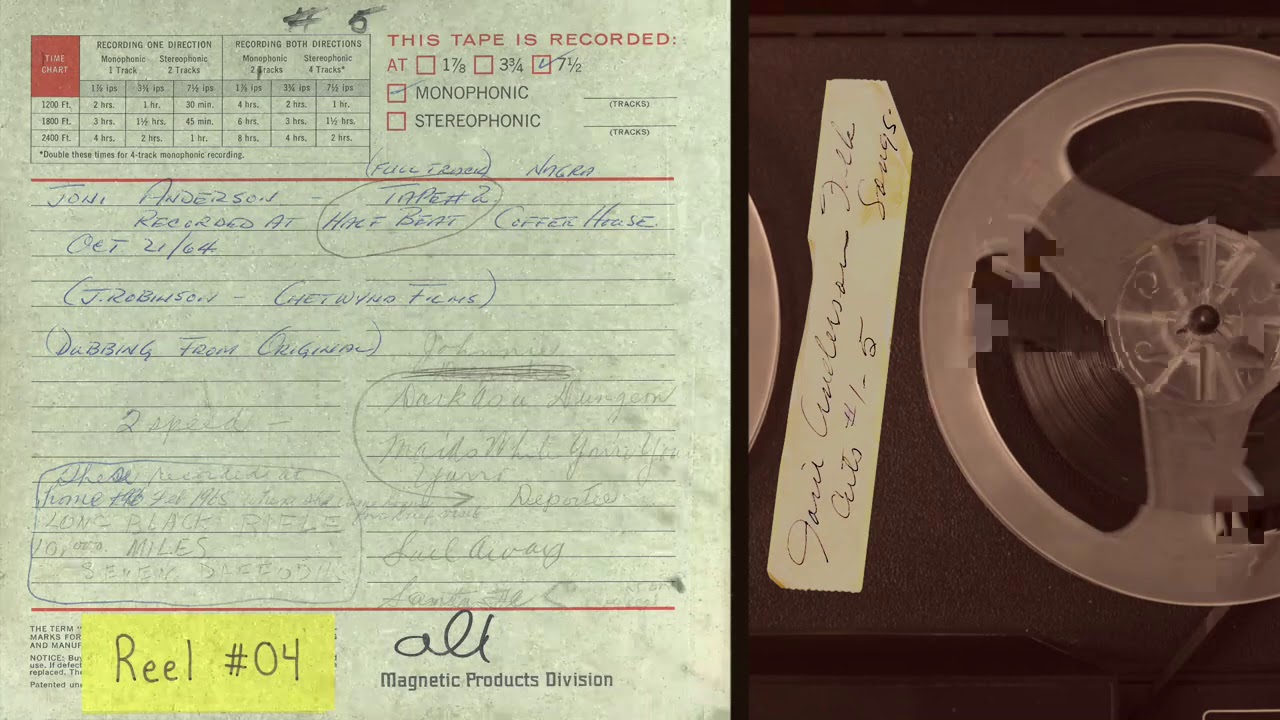 # 5
TIME CHART
RECORDING ONE DIRECTION RECORDING BOTH DIRECTIONS
Monophonic 1 Track Stereophonic 2 Tracks Monophonic 2 Tracks Stereophonic 4 Tracks*
1⅞ ips 3¾ ips 7½ ips 1⅞ ips 3¾ ips 7½ ips
1200 Ft. 2 hrs. 1 hr. 30 min. 4 hrs. 2 hrs. 1 hr.
1800 Ft. 3 hrs. 1½ hrs. 45 min. 6 hrs. 3 hrs. 1½ hrs.
2400 Ft. 4 hrs. 2 hrs. 1 hr. 8 hrs. 4 hrs. 2 hrs.
*Double these times for 4-track monophonic recording.
THIS TAPE IS RECORDED:
AT 1⅞ 3¾ 7½
MONOPHONIC
(TRACKS)
STEREOPHONIC
(TRACKS)
(FULL TRACK) NAGRA
JONI ANDERSON - TAPE #2
RECORDED AT HALF BEAT COFFEE HOUSE
OCT 21/64
(J. ROBINSON - CHETWYND FILMS)
(DUBBING FROM ORIGINAL)
2 speed -
Dark as a Dungeon
These recorded at
home Feb 1965
Deportee
LONG BLACK RIFLE
10,000 MILES
Sail Away
SEVEN
THE TERM "
MARKS FOR
AND MANUF
NOTICE: Buy
use. If defect
replaced. The
Patented und
Reel #04
all
Magnetic Products Division
Joni Anderson Folk Songs.
Cuts #1-5